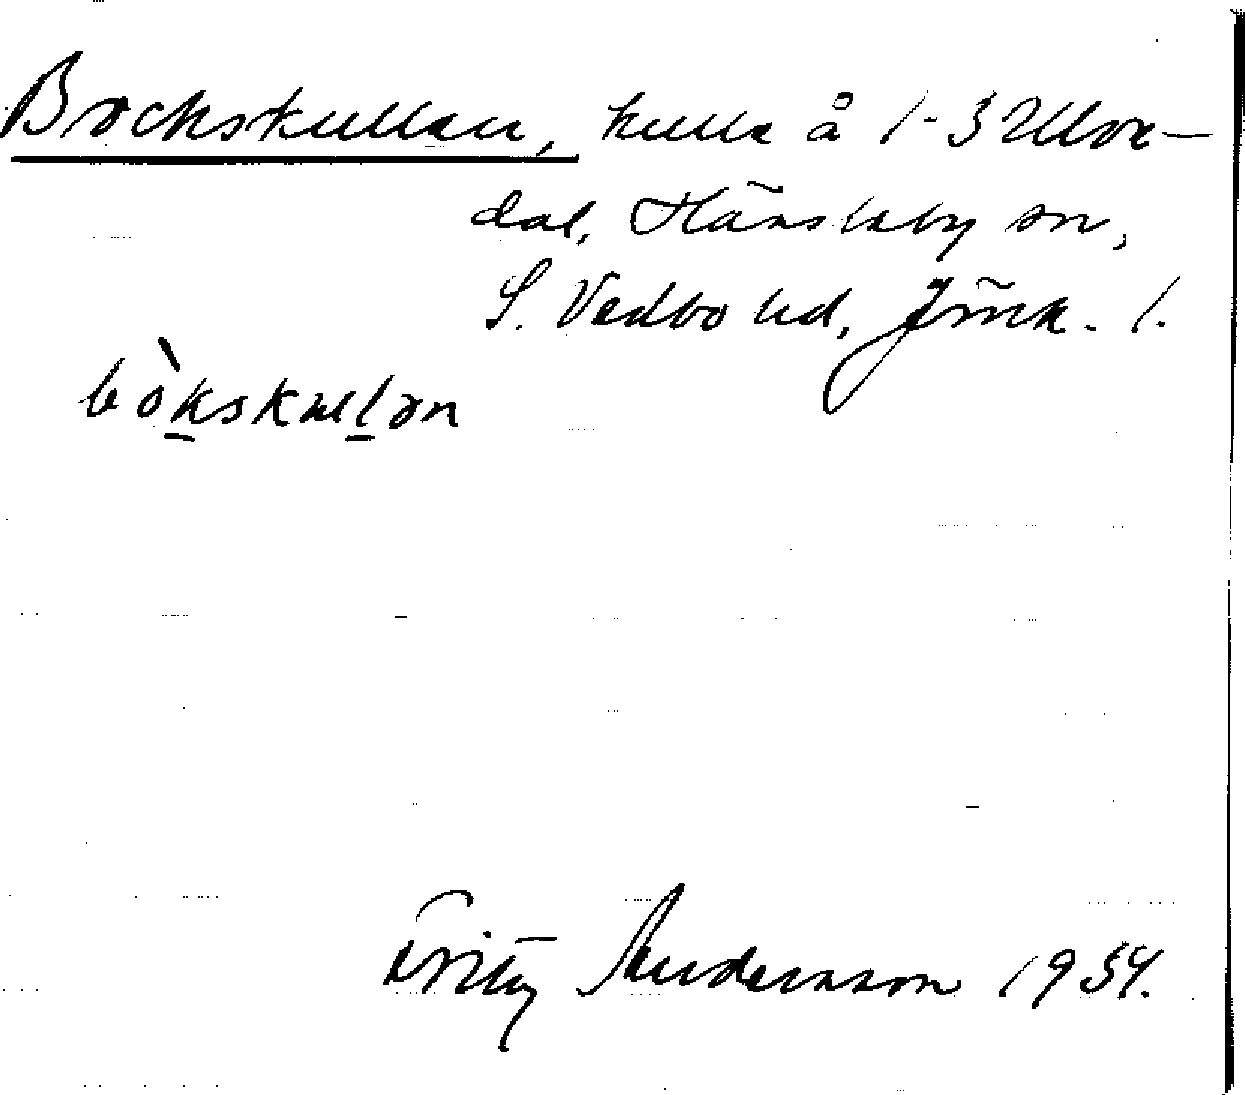 Bockskullen, kulle å 1-3
dal, Hässleby sn,
S. Vedbo hd, Jönk. l.
bòkskullən
Fritz Andersson 1934.